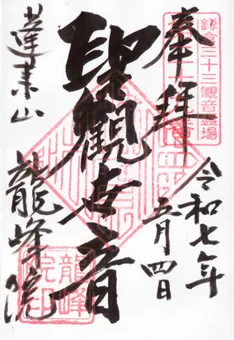 鎌倉三十三観音霊場
奉拝
令和七年
五月四日
聖観世音
蓬莱山
龍峰院
龍峰
院印